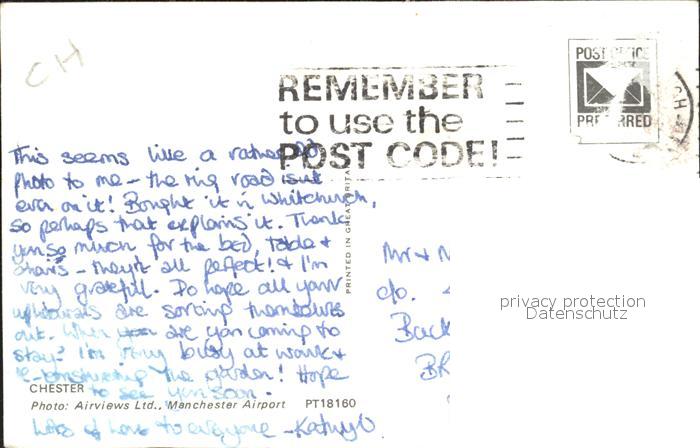 CH
REMEMBER
to use the
POST CODE!
POST OFFICE
PREFERRED
This seems like a rather old
photo to me - the ring road isn't
even on it! Bought it in Whitchurch,
so perhaps that explains it. Thank
you so much for the bed, table +
chairs - they're all perfect! & I'm
very grateful. Do hope all your
are sorting themselves
out. When are you coming to
stay? I'm very busy at work +
re-constructing the garden! Hope
to see you soon.
Lots of love to everyone - Kathryn
PRINTED IN GREAT BRITAIN
Mr + M
c/o.
Buck
privacy protection
Datenschutz
CHESTER
Photo: Airviews Ltd., Manchester Airport PT18160